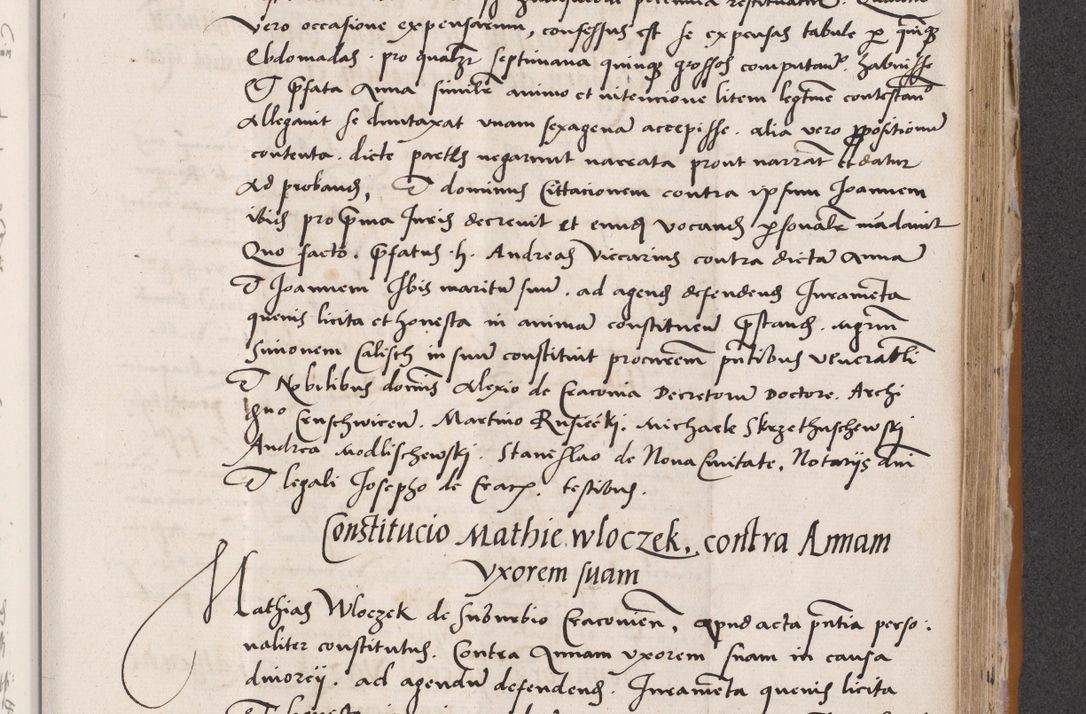 vero occasione expensarum, confessus est se expensas tabule per quinq
Ebdomadas. pro qualibet septimana quinq grossos computan. habuisse
Et prefata Anna simile animo et intencione litem legitime contestan
Allegavit se dumtaxat unam sexagena accepisse. alia vero propositionu
contenta. dicte partes negarunt narrata prout narrat et datur
Ad proband, Et dominus Cittacionem contra ipsum Joannem
ibid pro prima Juris decrevit et eund vocand personale madavit
Quo facto. prefatus h. Andreas Viccarius contra dicta Anna
Et Joannem Ibis maritu suu. ad agend defendend Juramenta
quevis licita et honesta in anima constituen prestand. mgrm
Simonem Calisch in suu constituit procurem pntibus venerabli
Et Nobilibus domis Alexio de Craconia Decretoru Doctore. Archi
gno Cruschwicen. Martino Rusiecki. Michaele Skrzethuschewskj
Andrea Modlischewskj. Stanislao de Nova Civitate, Notarijs dni
Et legali Josepho de Crac. testibus.
Constitucio Mathie wloczek, contra Annam
uxorem suam
Mathias Wloczek de Suburbio Cracovien, apud acta pntia perso:
naliter constitutus. Contra Annam uxorem suam in causa
divorcij. ad agendu defendend. Juramenta quevis licita